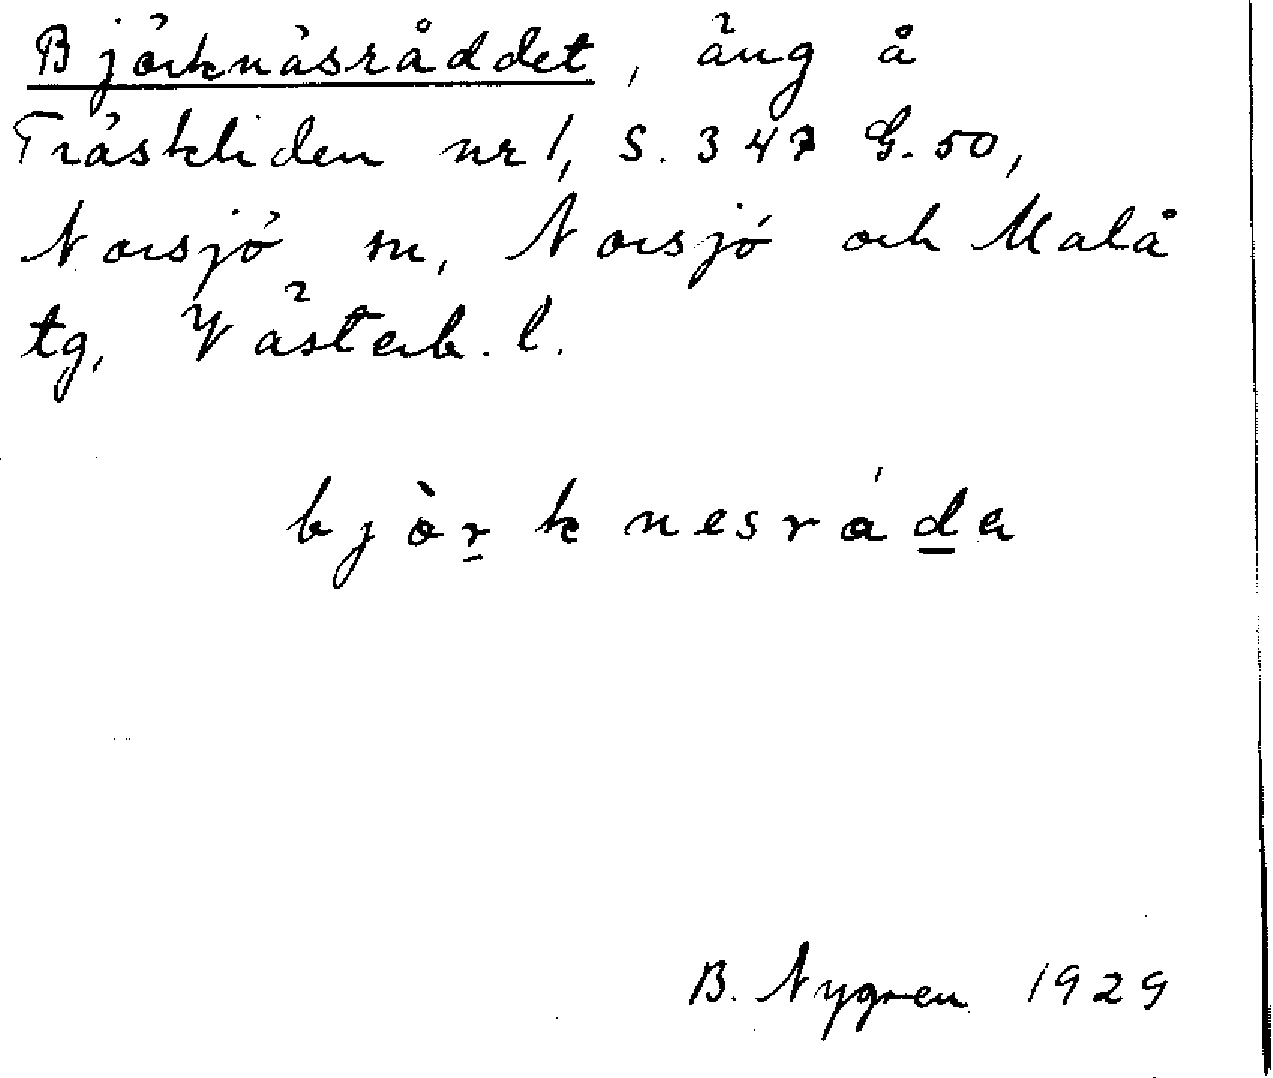 Björknäsråddet, äng å
Träskliden nr 1, S. 347 G. 50,
Norsjö sn, Norsjö och Malå
tg, Västerb. l.
bjò̀r̠knesrád̠a
B. Nygren 1929